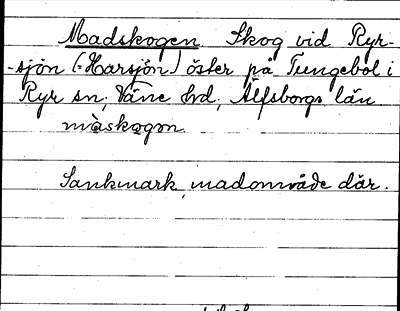 Madskogen Skog vid Ryr-
-sjön (=Harsjön) öster på Tungebol i
Ryr sn, Väne hd, Älfsborgs län.
màskogon
Sankmark, madområde där.